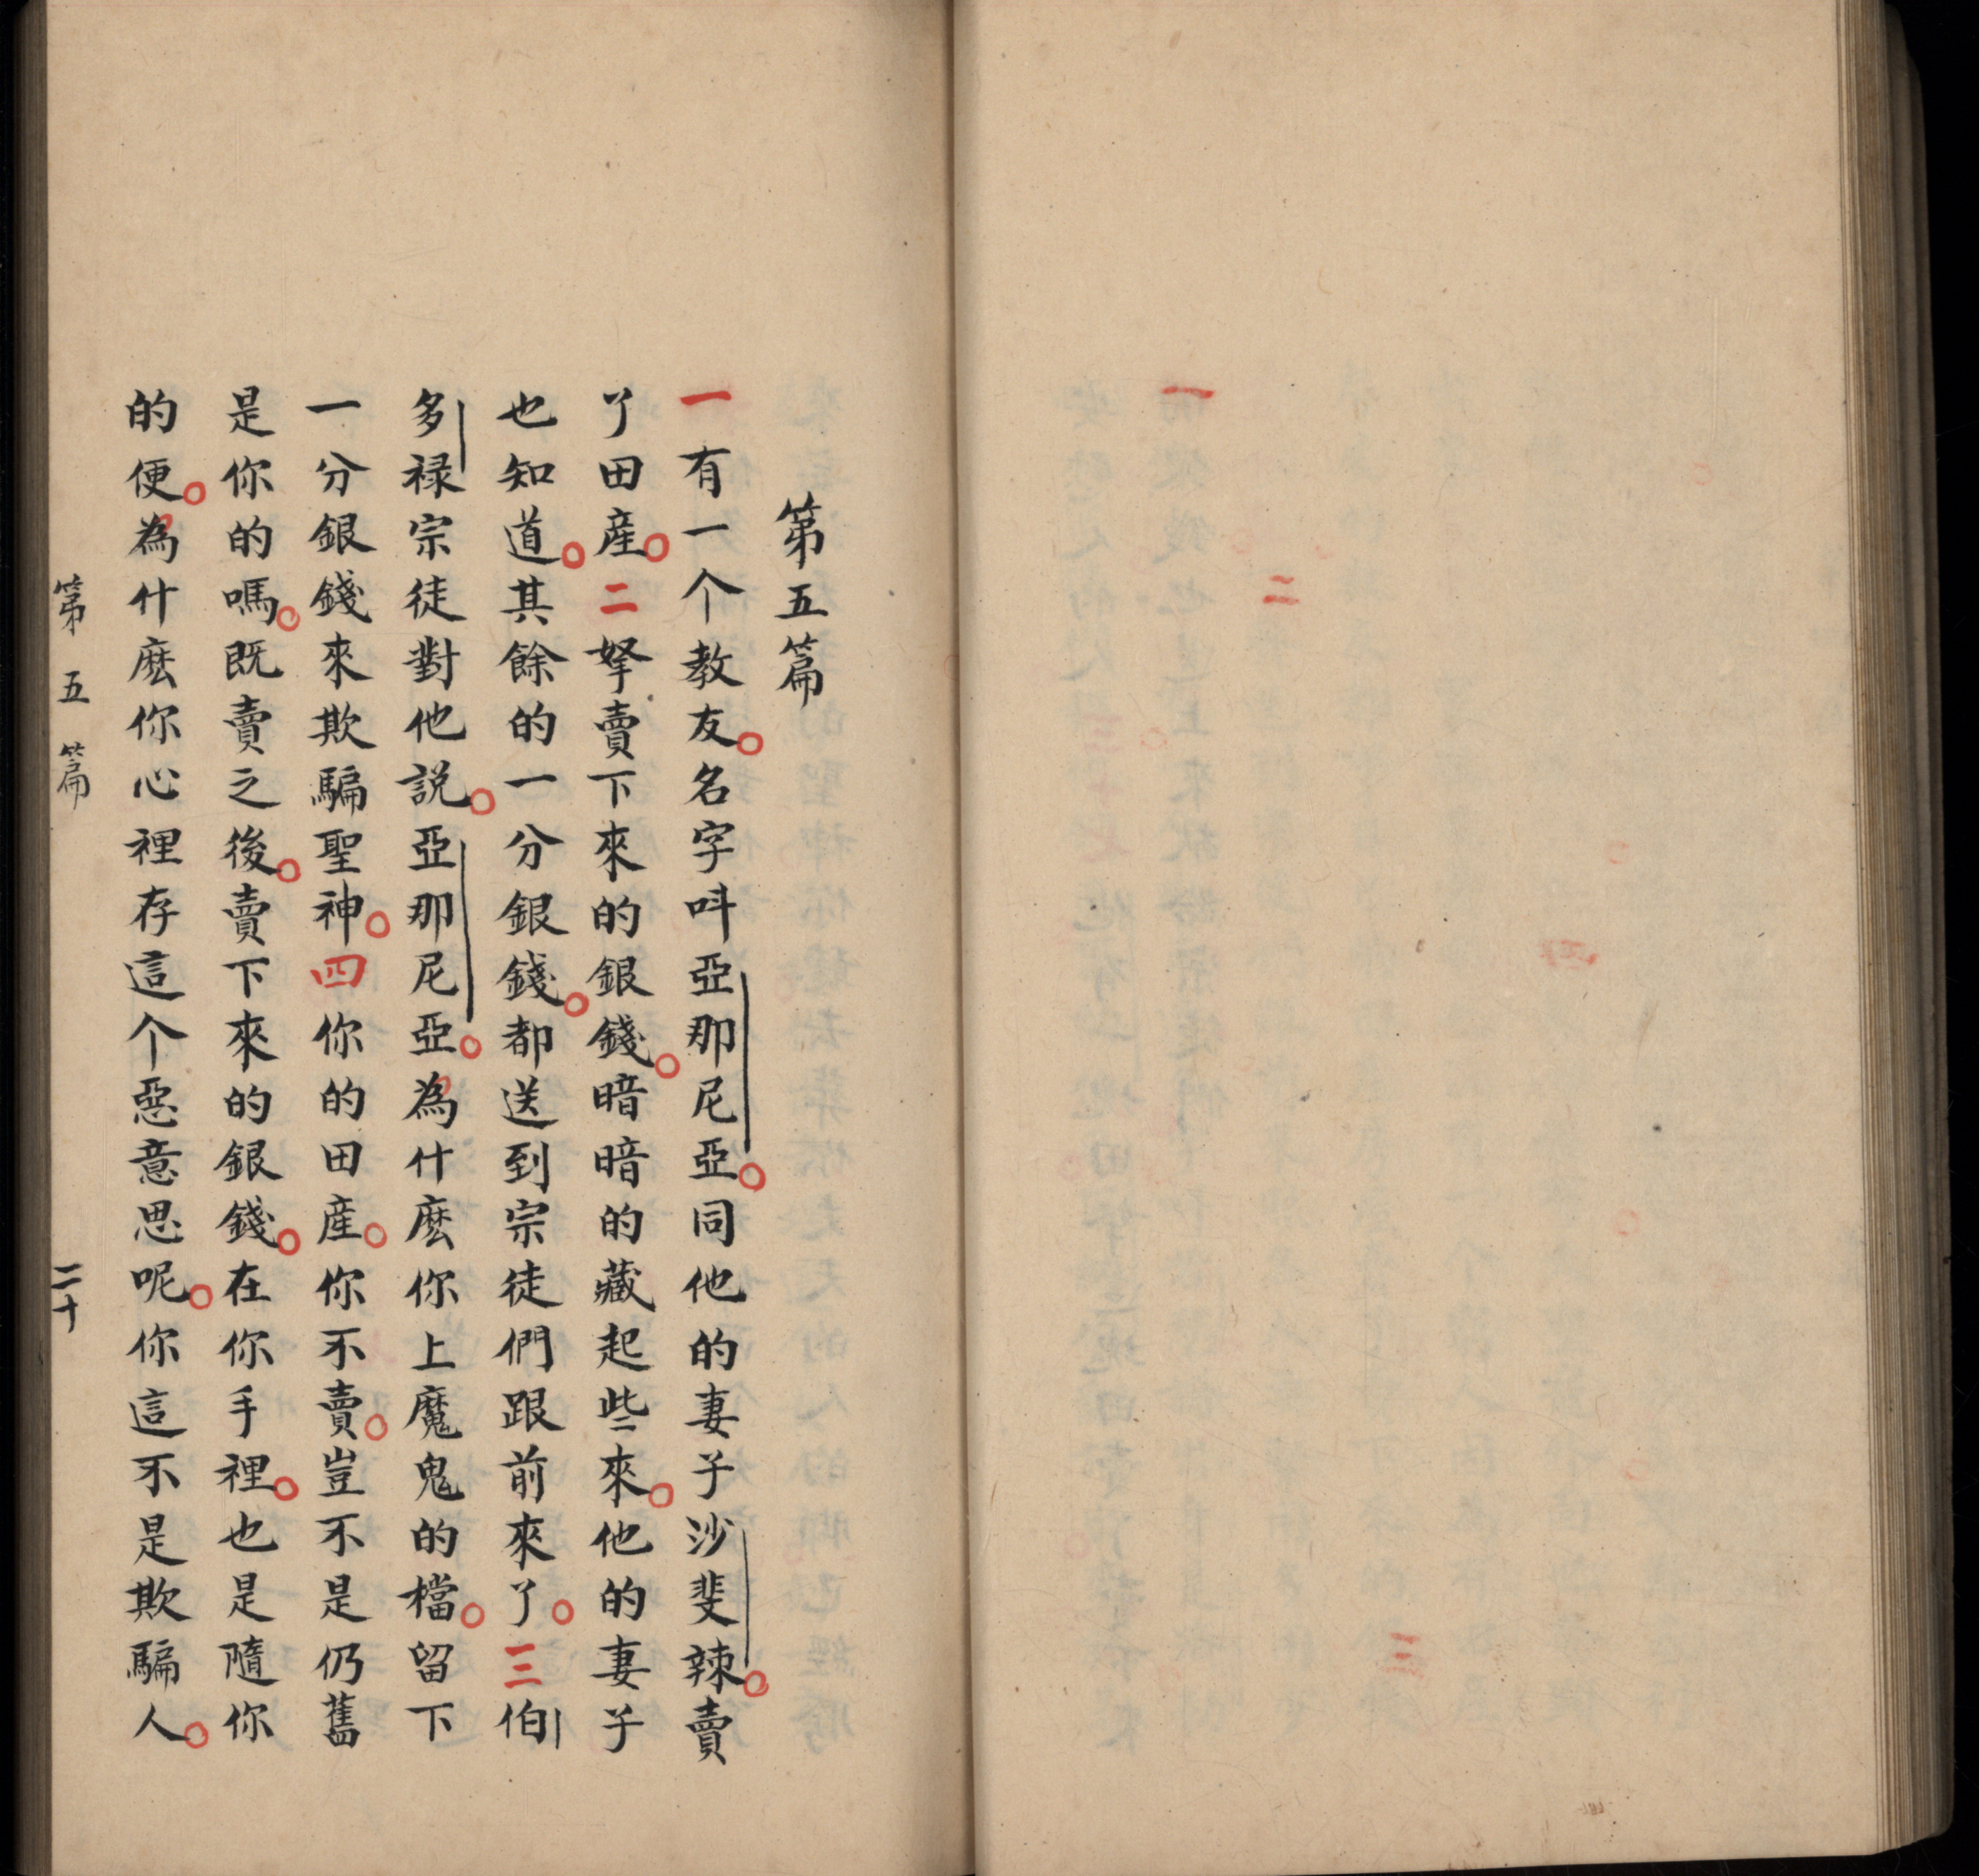 第五篇
一有一个教友。名字呌亞那尼亞。同他的妻子沙斐辣。賣
了田産。二拏賣下來的銀錢。暗暗的藏起些來。他的妻子
也知道。其餘的一分銀錢。都送到宗徒們跟前來了。三伯
多禄宗徒對他説。亞那尼亞。為什麽你上魔鬼的檔。留下
一分銀錢來欺騙聖神。四你的田産。你不賣。豈不是仍舊
是你的嗎。既賣之後。賣下來的銀錢。在你手裡。也是隨你
的便。為什麽你心裡存這个惡意思呢。你這不是欺騙人。
第五篇 二十